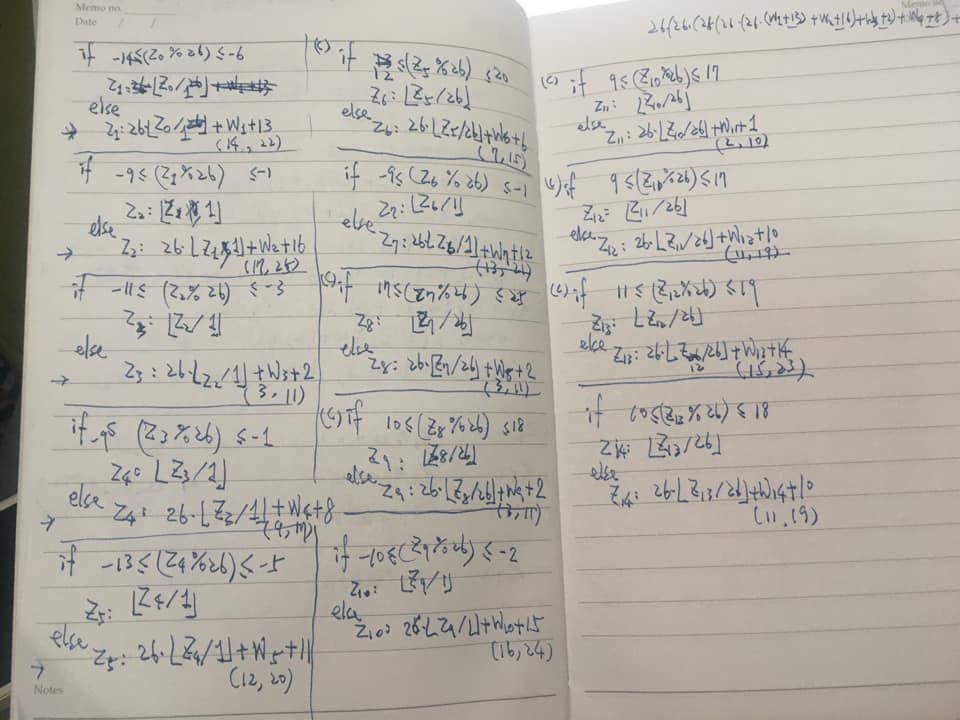 Memo no.
Date / /
if -14≤(Z0%26) ≤-6
Z1: ⌊Z0/1⌋
else
→ Z1: 26·⌊Z0/1⌋+W1+13
(14, 22)
if -9≤(Z1%26) ≤-1
Z2: ⌊Z1/1⌋
else
→ Z2: 26·⌊Z1/1⌋+W2+16
(17, 25)
if -11≤(Z2%26) ≤-3
Z3: ⌊Z2/1⌋
else
→ Z3: 26·⌊Z2/1⌋+W3+2
(3, 11)
if -9≤ (Z3%26) ≤-1
Z4: ⌊Z3/1⌋
else
→ Z4: 26·⌊Z3/1⌋+W4+8
(9, 17)
if -13≤(Z4%26)≤-5
Z5: ⌊Z4/1⌋
else
→ Z5: 26·⌊Z4/1⌋+W5+11
(12, 20)
Notes
(c) if 12≤(Z5%26) ≤20
Z6: ⌊Z5/26⌋
else
Z6: 26·⌊Z5/26⌋+W6+6
(7, 15)
if -9≤(Z6%26) ≤-1
Z7: ⌊Z6/1⌋
else
Z7: 26·⌊Z6/1⌋+W7+12
(13, 21)
(c) if 17≤(Z7%26) ≤25
Z8: ⌊Z7/26⌋
else
Z8: 26·⌊Z7/26⌋+W8+2
(3, 11)
(c) if 10≤(Z8%26) ≤18
Z9: ⌊Z8/26⌋
else
Z9: 26·⌊Z8/26⌋+W9+2
(3, 11)
if -10≤(Z9%26)≤-2
Z10: ⌊Z9/1⌋
else
Z10: 26·⌊Z9/1⌋+W10+15
(16, 24)
26(26·(26(26·(26·(W1+13)+W2+16)+W3+2)+W4+8)+
(c) if 9≤(Z10%26)≤17
Z11: ⌊Z10/26⌋
else
Z11: 26·⌊Z10/26⌋+W11+1
(2, 10)
(c) if 9≤(Z11%26)≤17
Z12= ⌊Z11/26⌋
else
Z12: 26·⌊Z11/26⌋+W12+10
(11, 19)
(c) if 11≤(Z12%26)≤19
Z13: ⌊Z12/26⌋
else
Z13: 26·⌊Z12/26⌋+W13+14
(15, 23)
if 10≤(Z13%26)≤18
Z14: ⌊Z13/26⌋
else
Z14: 26·⌊Z13/26⌋+W14+10
(11, 19)